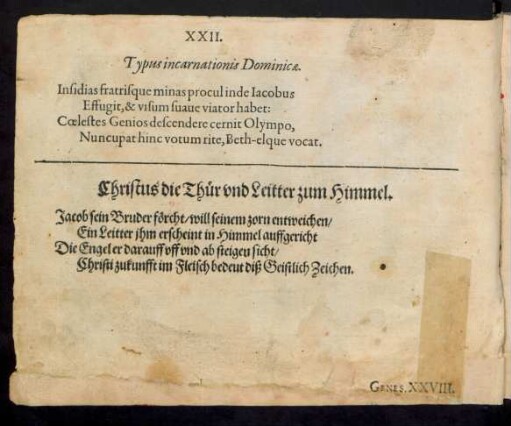 XXII.
Typus incarnationis Dominicæ.
Insidias fratrisque minas procul inde Iacobus
Effugit, & visum suaue viator habet:
Cœlestes Genios descendere cernit Olympo,
Nuncupat hinc votum rite, Beth-elque vocat.
Christus die Thür vnd Leitter zum Himmel.
Jacob sein Bruder förcht/ will seinem zorn entweichen/
Ein Leitter jhm erscheint in Himmel auffgericht
Die Engel er darauff off vnd ab steigen sicht/
Christi zukunfft im Fleisch bedeut diß Geistlich Zeichen.
GENES. XXVIII.